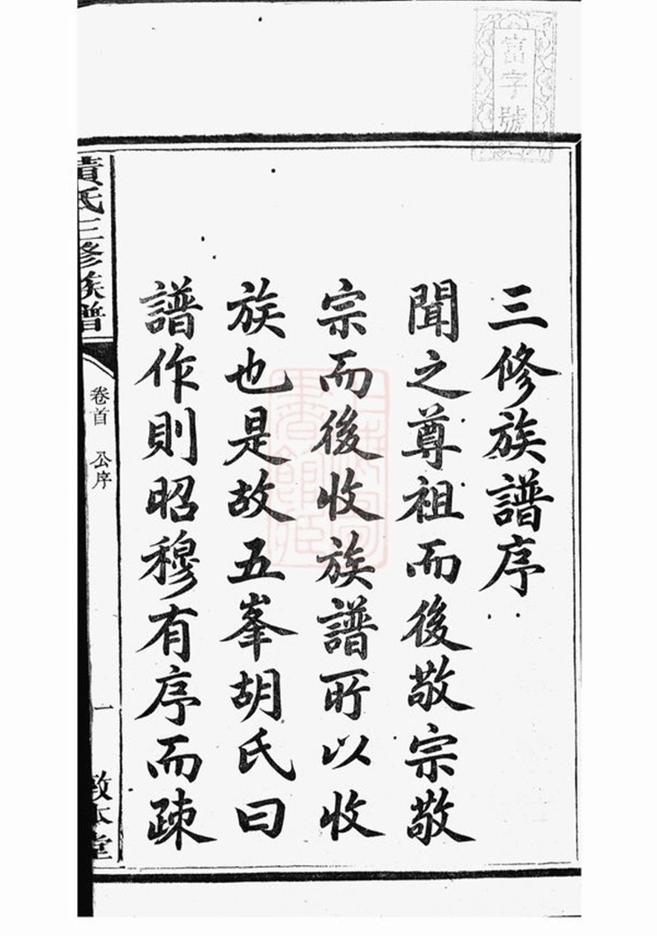 富字號
三修族譜序
聞之尊祖而後敬宗敬
宗而後收族譜所以收
族也是故五峯胡氏曰
譜作則昭穆有序而疎
黄氏三修族譜
卷首 公序
一
敦本堂